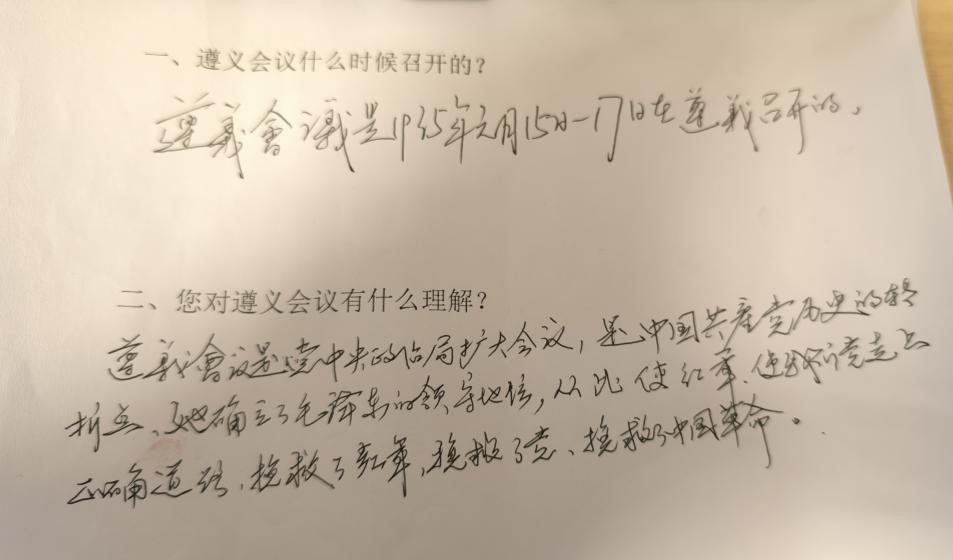 一、遵义会议什么时候召开的？
遵義會議是1935年元月15日—17日在遵義召开的。
二、您对遵义会议有什么理解？
遵義會议是党中央政治局扩大会议，是中国共產党历史的转
折点、她确立了毛泽东的领导地位，从此使红軍、使我们党走上
正确道路，挽救了红軍，挽救了党、挽救了中国革命。